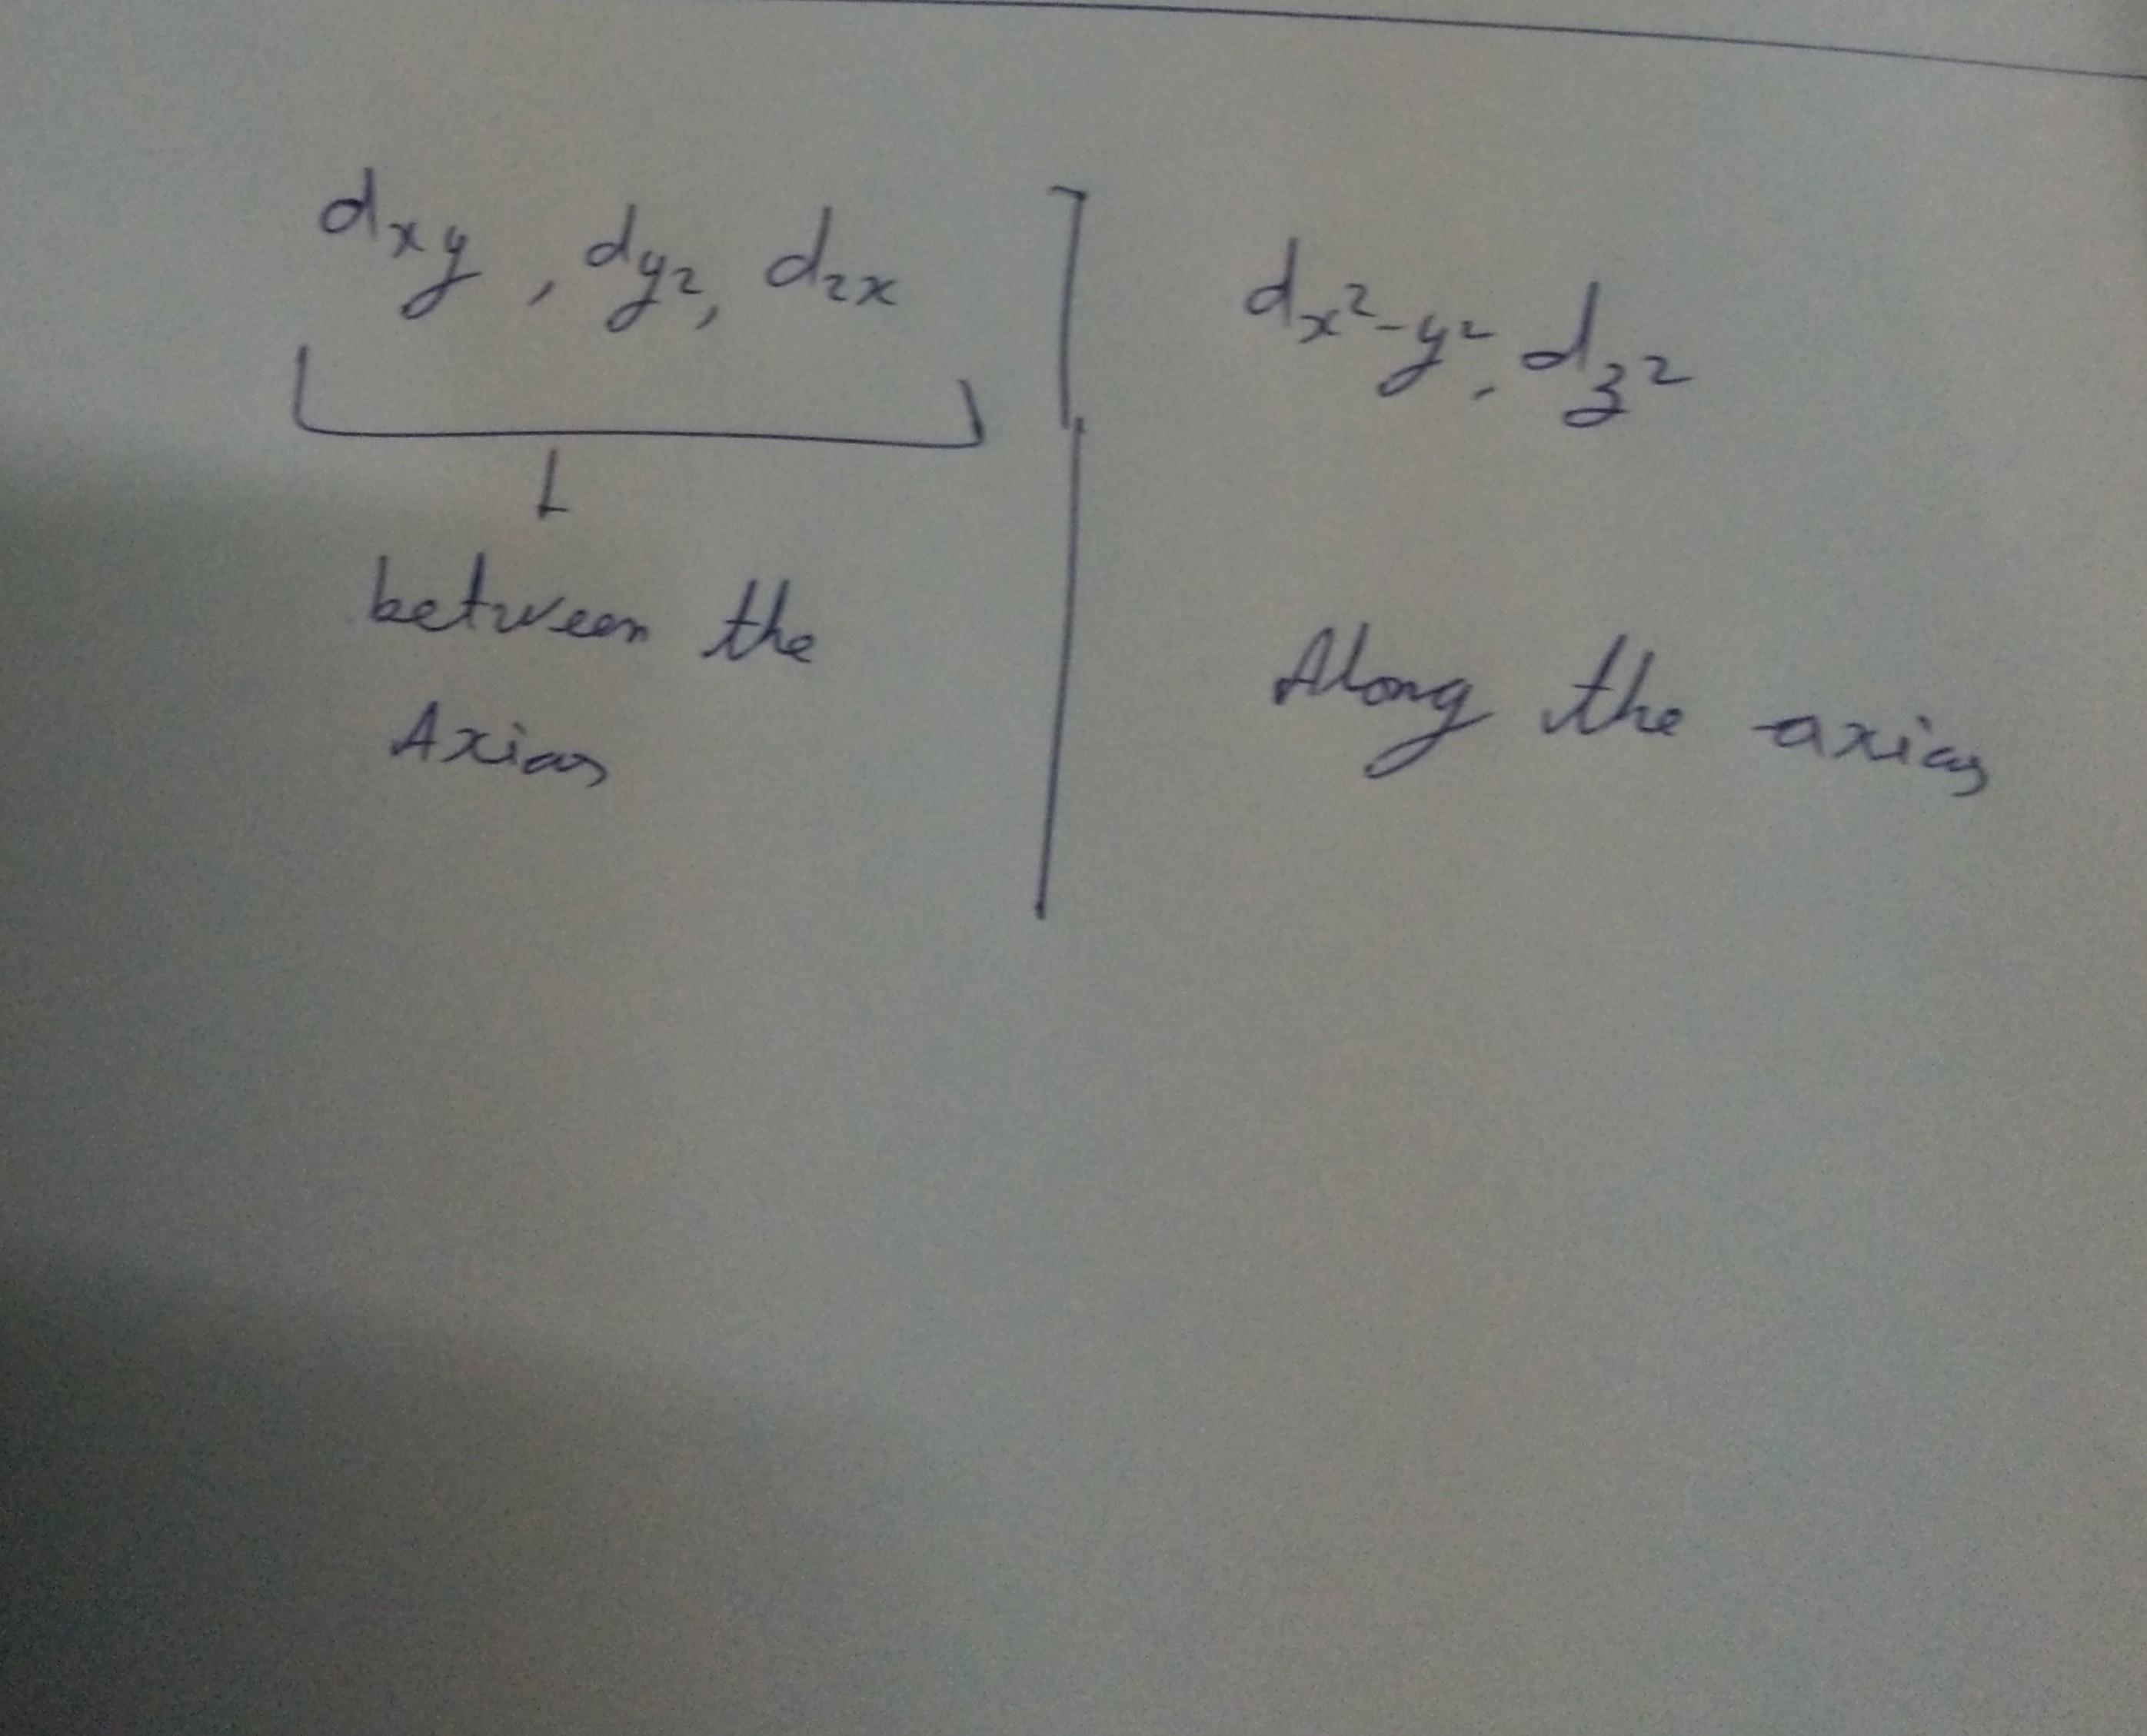 dxy, dyz, dzx
between the
Axias
dx²-y², dz²
Along the axias